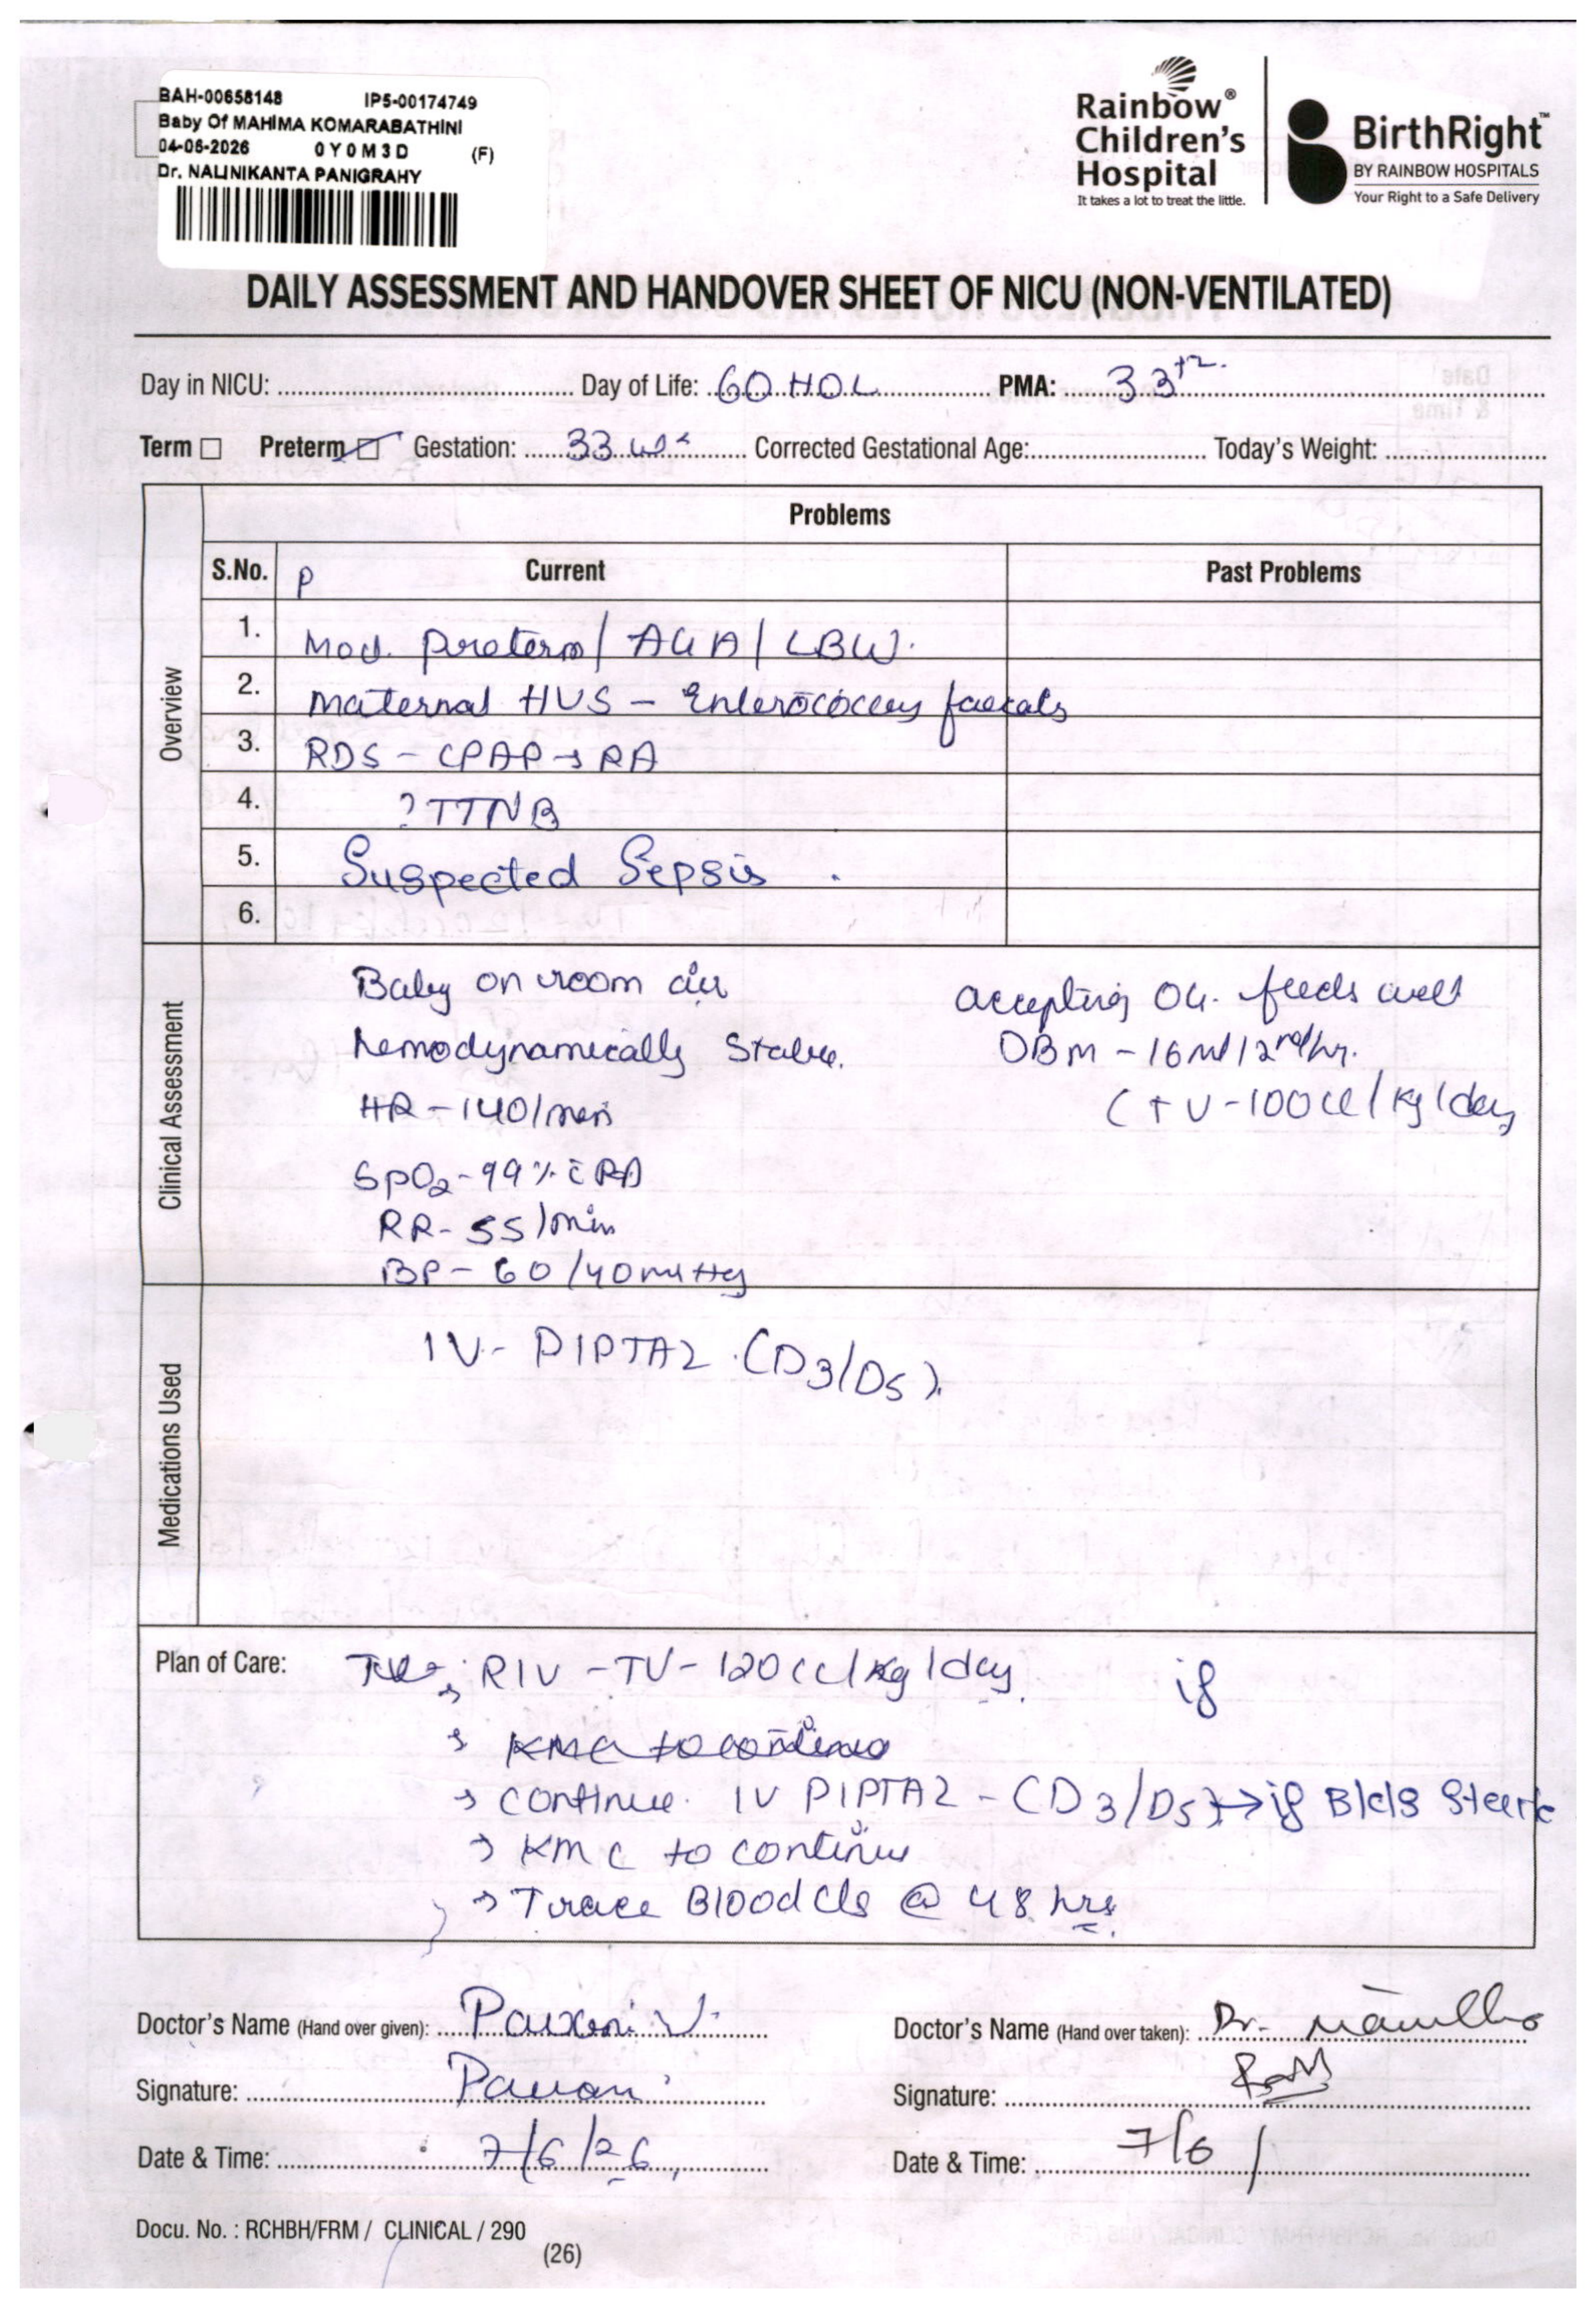 BAH-00658148 IP5-00174749
Baby Of MAHIMA KOMARABATHINI
04-06-2026 0Y0M3D (F)
Dr. NALINIKANTA PANIGRAHY
Rainbow®
Children's
Hospital
It takes a lot to treat the little.
BirthRight™
BY RAINBOW HOSPITALS
Your Right to a Safe Delivery
DAILY ASSESSMENT AND HANDOVER SHEET OF NICU (NON-VENTILATED)
Day in NICU: Day of Life: 60 HOL PMA: 33+2
Term Preterm Gestation: 33 wks Corrected Gestational Age: Today's Weight:
Overview
Problems
S.No. P Current Past Problems
1. Mod. preterm / AGA / LBW.
2. Maternal HVS - Enterococcus faecals
3. RDS - CPAP → RA
4. ? TTNB
5. Suspected Sepsis .
6.
Clinical Assessment
Baby on room air
hemodynamically Stable.
HR - 140/min
SpO2 - 99% c̄ RA
RR - 55/min
BP - 60/40mmHg
accepting OG. feeds well
DBM - 16ml/2nd hr.
(TV - 100cc/kg/day
Medications Used
IV - PIPTAZ (D3/D5).
Plan of Care: → RIV - TV - 120cc/kg/day. if
→ KMC to continue
→ continue IV PIPTAZ - (D3/D5) → if Bld c/s
→ KMC to continue
→ Trace Blood c/s @ 48 hrs.
Doctor's Name (Hand over given): Pavani V.
Doctor's Name (Hand over taken): Dr.
Signature: Pavani
Signature:
Date & Time: 7/6/26
Date & Time: 7/6/
Docu. No. : RCHBH/FRM / CLINICAL / 290
(26)